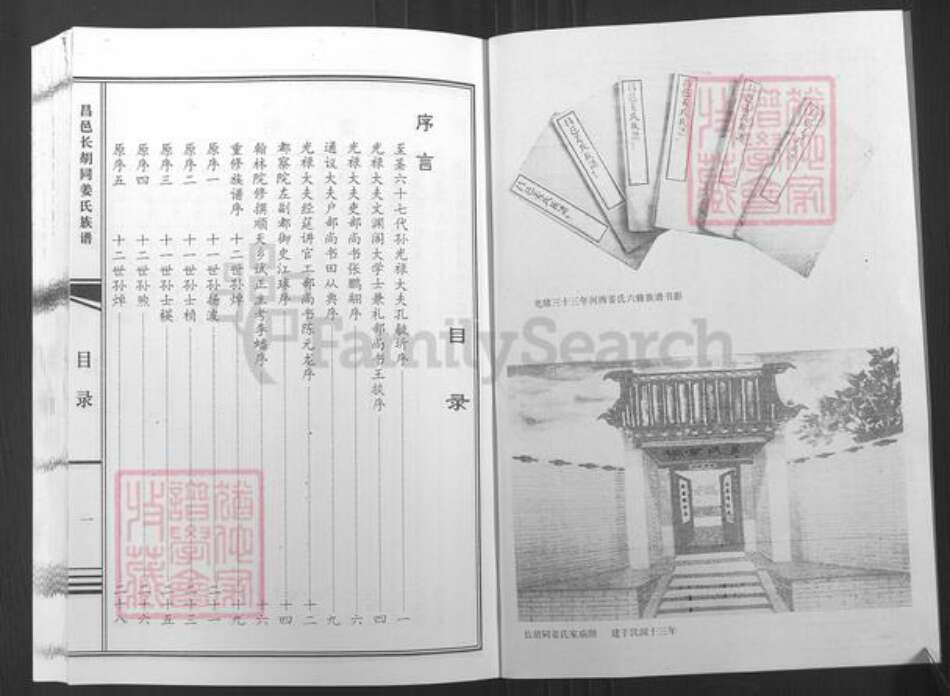 目录
序言
至圣六十七代孙光禄大夫孔毓圻序 一
光禄大夫文渊阁大学士兼礼部尚书王掞序 四
光禄大夫吏部尚书张鹏翮序 六
通议大夫户部尚书田从典序 九
光禄大夫经筵讲官工部尚书陈元龙序 十二
都察院左副都御史江球序 十四
翰林院修撰顺天乡试正主考李蟠序 十六
重修族谱序 十二世孙焯 十九
原序一 十一世孙扬波 二十一
原序二 十一世孙士桢
原序三 十一世孙士模
原序四 十二世孙煦
原序五 十二世孙焯 二十八
昌邑长胡同姜氏族谱
目录
一
光绪三十三年河西姜氏六修族谱书影
长胡同姜氏家庙图 建于民国十三年
FamilySearch